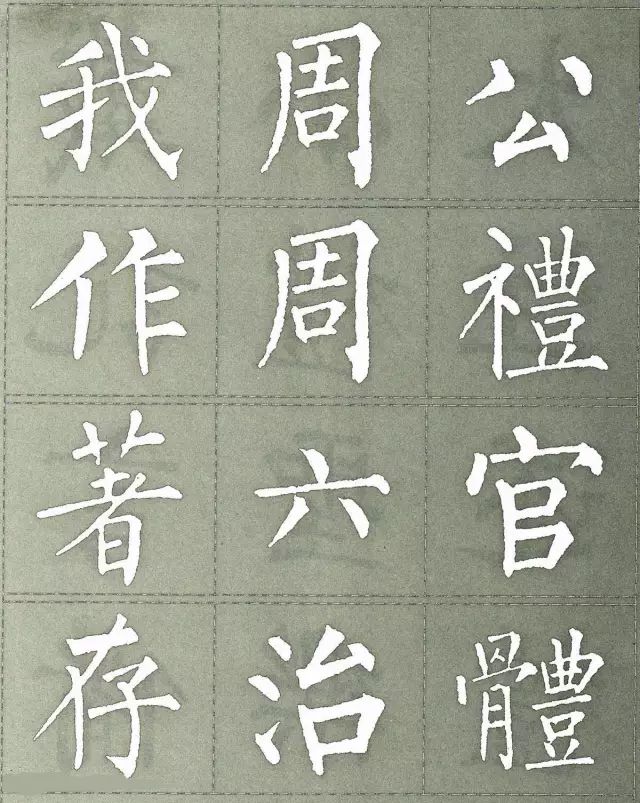 我周公
作周禮
著六官
存治體